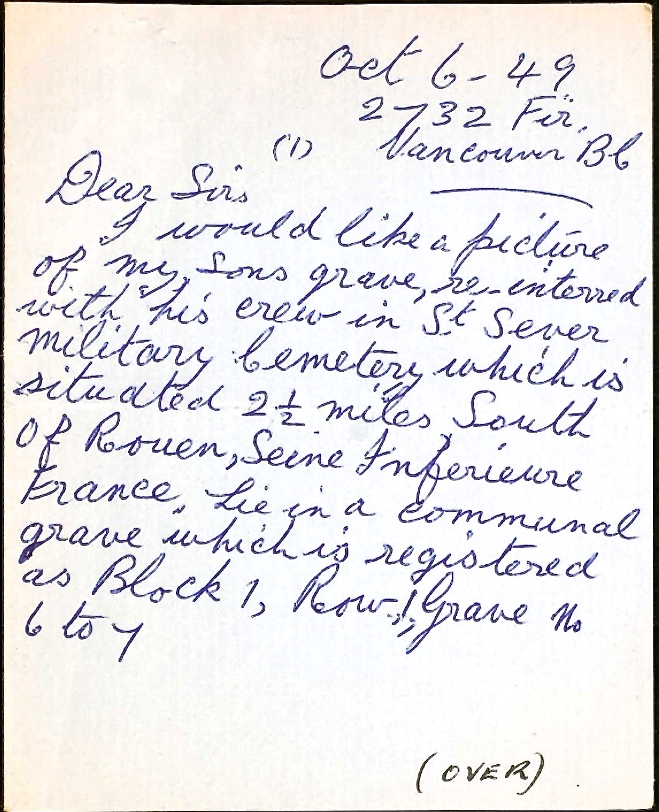 Oct 6 - 49
2732 Fir.
(1) Vancouver BC
Dear Sirs
I would like a picture
of my Sons grave, re-interred
with his crew in St Sever
Military Cemetery which is
situated 2 1/2 miles South
Of Rouen, Seine Inferieure
France, Lie in a communal
grave which is registered
as Block 1, Row 1, Grave No
6 to 7
(OVER)